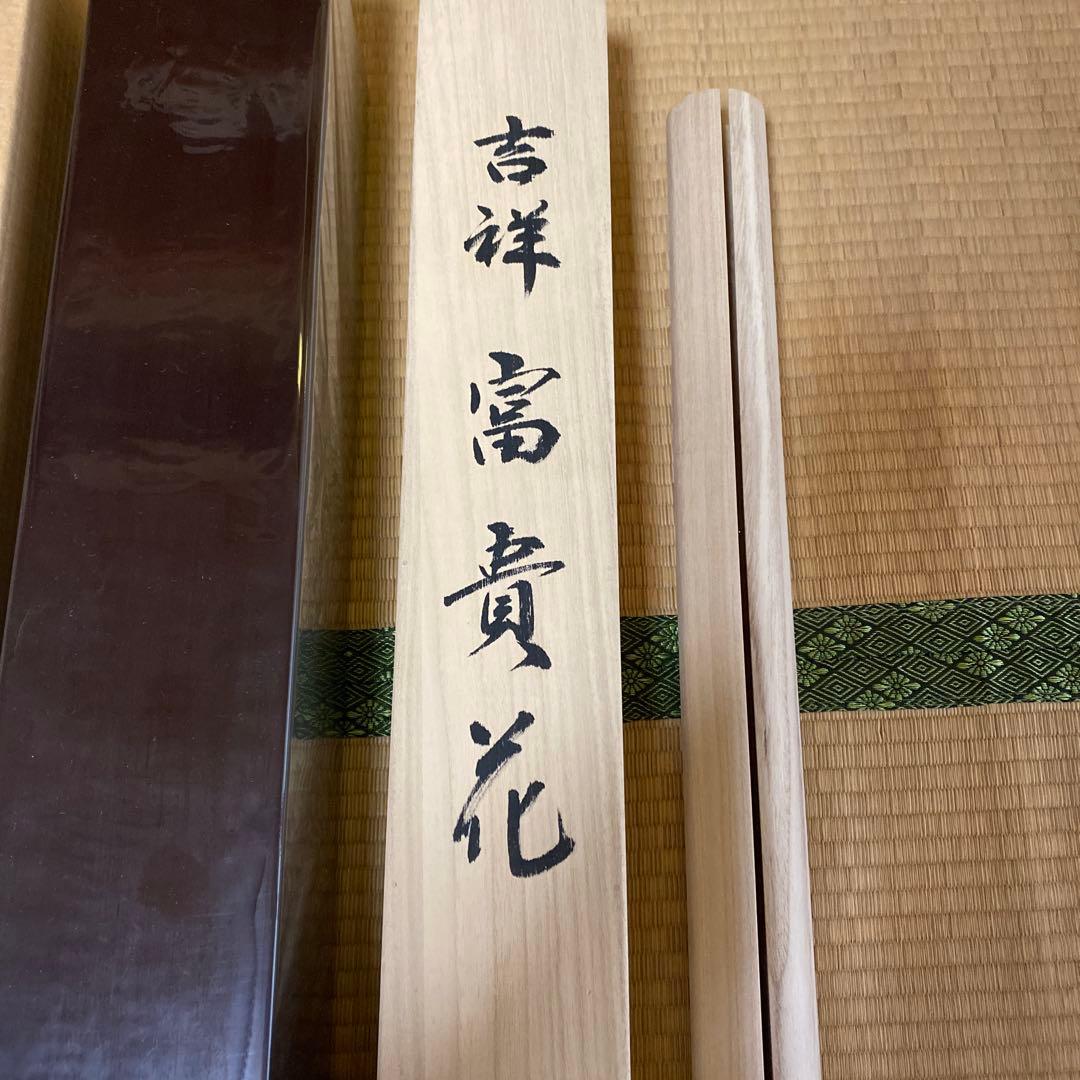 吉祥富貴花